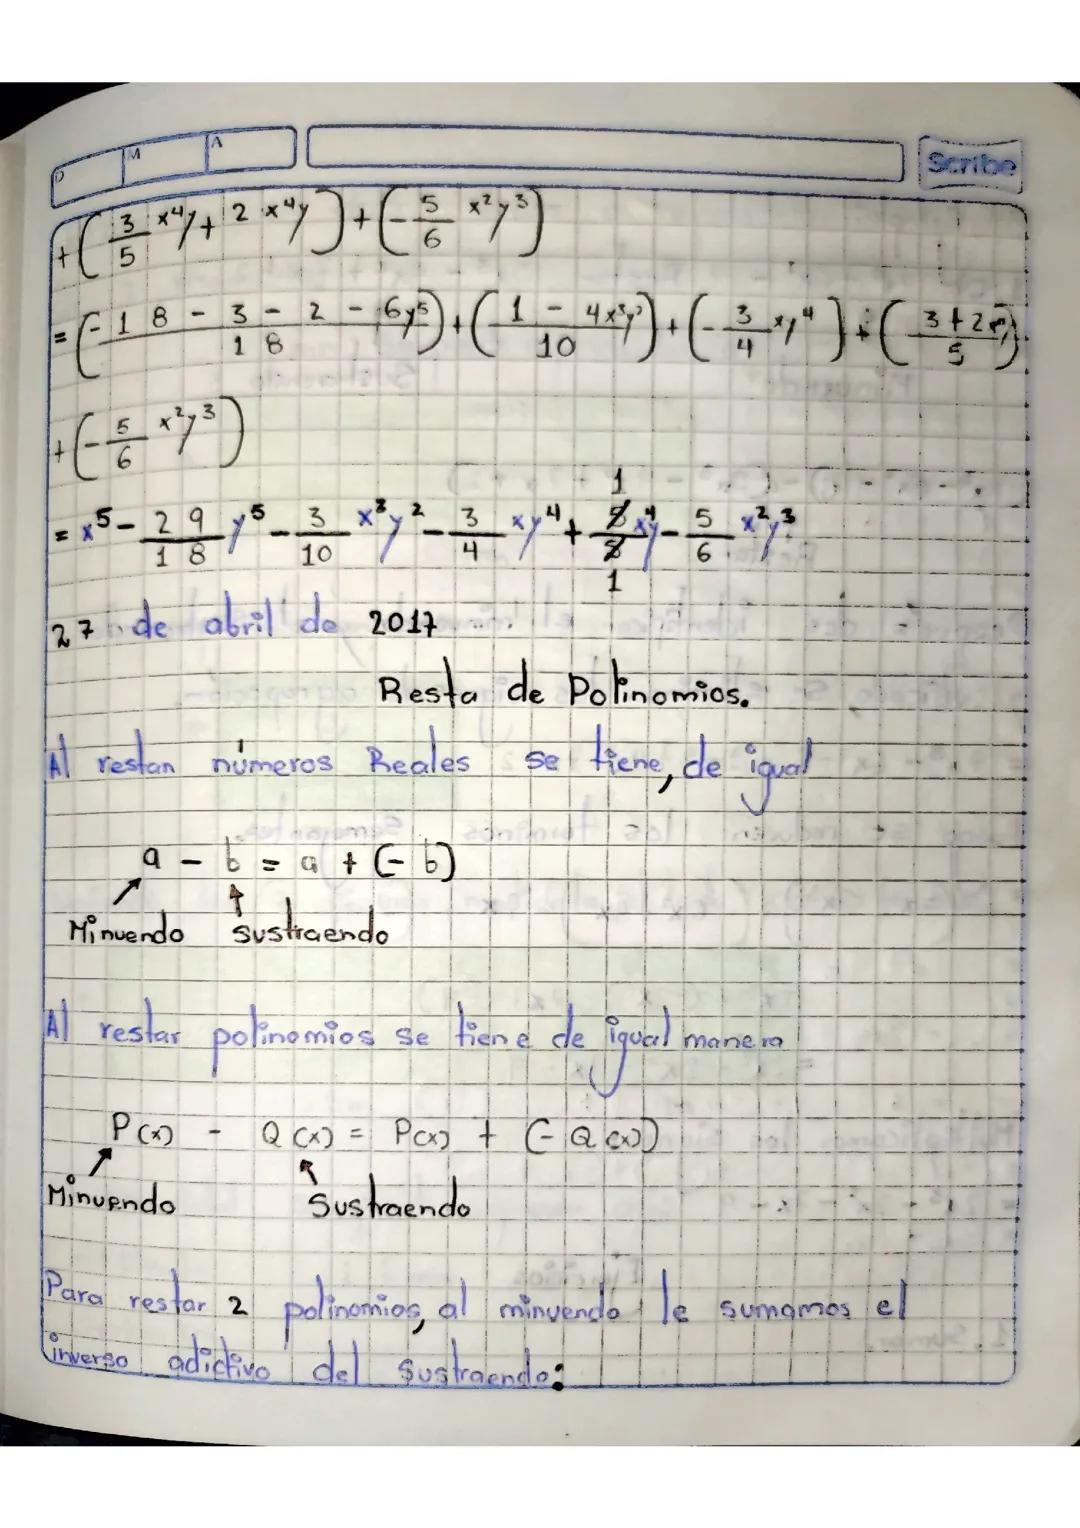 D M A Scribe
+(3/5 x⁴y + 2 x⁴y) + (-5/6 x²y³)
= (-18 - 3 - 2 - 6y⁵/18) + (1 - 4x³y²/10) + (-3/4 xy⁴) + (3+2/5)
+ (-5/6 x²y³)
1
= x⁵ - 29/18 y⁵ - 3/10 x³y² - 3/4 xy⁴ + x⁴y - 5/6 x²y³
1
27 de abril de 2017
Resta de Polinomios.
Al restan números Reales se tiene, de igual
a - b = a + (- b)
Minuendo sustraendo
Al restar polinomios se tiene de igual manera
P(x) - Q(x) = P(x) + (- Q(x))
Minuendo Sustraendo
Para restar 2 polinomios, al minuendo le sumamos el
inverso adictivo del sustraendo: